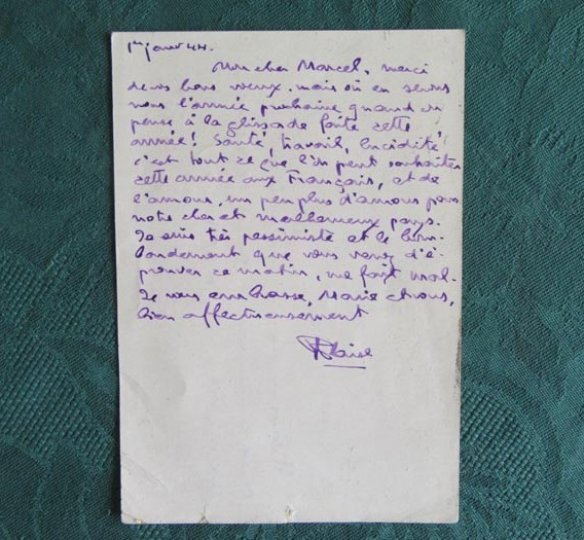 1er janv 44.
Mon cher Marcel, merci
de vos bons voeux. mais où en serons
nous l'année prochaine quand on
pense à la glissade faite cette
année! Santé, travail, lucidité!
c'est tout ce que l'on peut souhaiter
cette année aux Français, et de
l'amour, un peu plus d'amour pour
notre cher et malheureux pays.
Je suis très pessimiste et le bom-
bardement que vous venez d'é-
prouver ce matin, me fait mal.
Je vous embrasse, Marie et vous,
bien affectueusement
Blaise